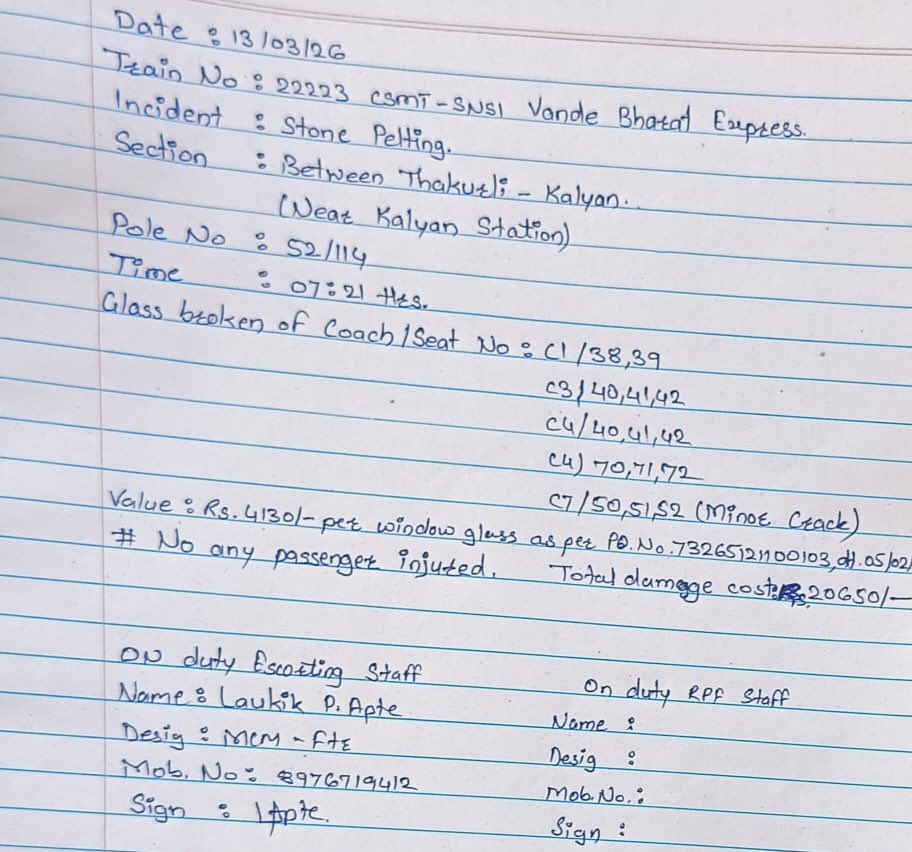 Date : 13/03/26
Train No : 22223 CSMT-SNSI Vande Bharat Express.
Incident : Stone Pelting.
Section : Between Thakurli - Kalyan.
(Near Kalyan Station)
Pole No : 52/114
Time : 07:21 Hrs.
Glass broken of Coach/Seat No : C1/38,39
C3/40,41,42
C4/40,41,42
C4) 70,71,72
C7/50,51,52 (Minor Crack)
Value : Rs. 4130/- per window glass as per PO.No.73265121100103, dt. 05/02/
# No any passenger injured. Total damage cost: Rs. 20650/-
ON duty Escorting Staff
On duty RPF Staff
Name : Laukik P. Apte
Name :
Desig : MCM - Fte
Desig :
Mob. No : 8976719412
Mob.No. :
Sign : LApte.
Sign :